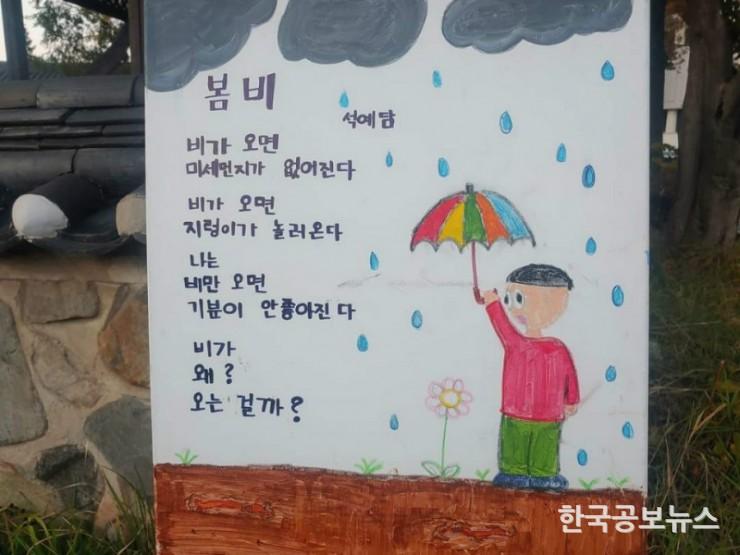 봄비
석예담
비가 오면
미세먼지가 없어진다
비가 오면
지렁이가 놀러온다
나는
비만 오면
기분이 안좋아진다
비가
왜?
오는 걸까?
한국공보뉴스